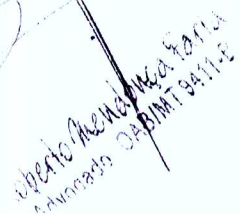 oberto Mendonça Faria
Advogado OAB/MT 9411-B